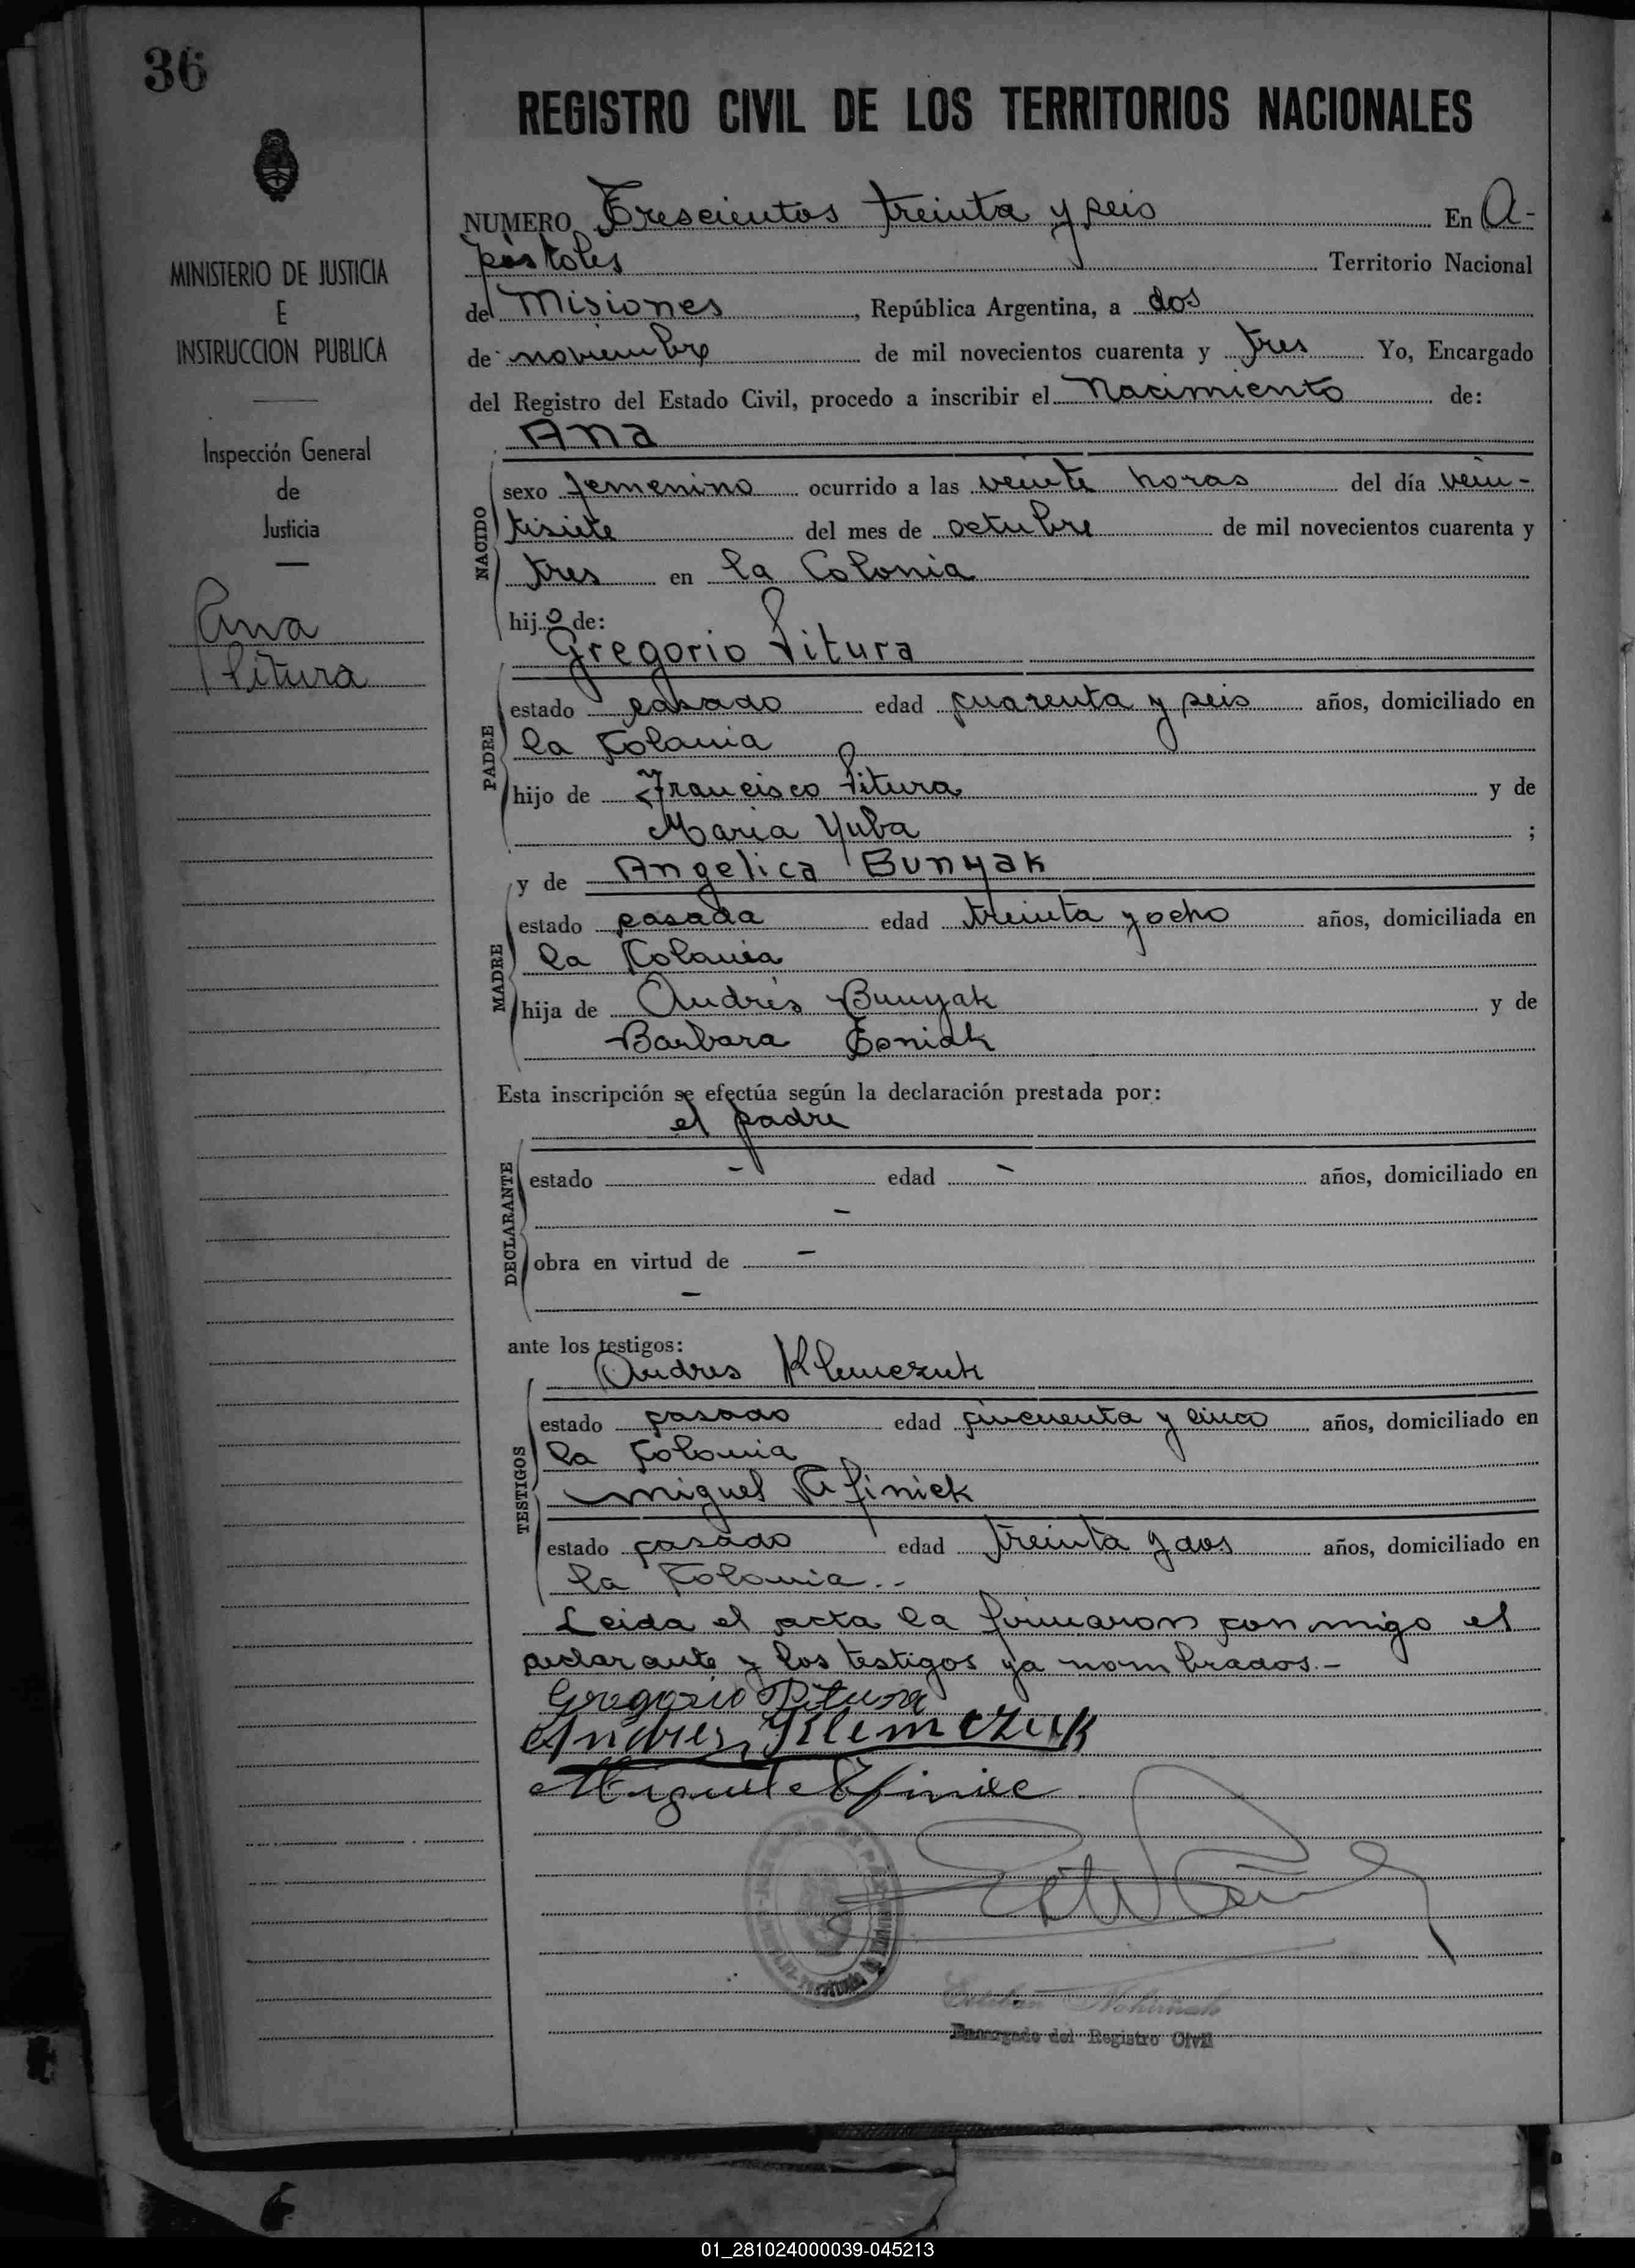 36
MINISTERIO DE JUSTICIA
E
INSTRUCCION PUBLICA
Inspección General
de
Justicia
Ana
Pitura
REGISTRO CIVIL DE LOS TERRITORIOS NACIONALES
NUMERO Trescientos treinta y seis En A-
póstoles Territorio Nacional
del Misiones, República Argentina, a dos
de noviembre de mil novecientos cuarenta y tres Yo, Encargado
del Registro del Estado Civil, procedo a inscribir el Nacimiento de:
Ana
NACIDO
sexo femenino ocurrido a las veinte horas del día vein-
tisiete del mes de octubre de mil novecientos cuarenta y
tres en la Colonia
hijo de:
Gregorio Pitura
PADRE
estado casado edad cuarenta y seis años, domiciliado en
la Colonia
hijo de Francisco Pitura y de
Maria Yuba ;
y de Angelica Bunyak
MADRE
estado casada edad treinta y ocho años, domiciliada en
la Colonia
hija de Andrés Bunyak y de
Barbara
Esta inscripción se efectúa según la declaración prestada por:
el padre
DECLARANTE
estado - edad - años, domiciliado en
-
obra en virtud de -
-
ante los testigos:
Andres Klemczuk
TESTIGOS
estado casado edad cincuenta y cinco años, domiciliado en
la Colonia
Miguel
estado casado edad treinta y dos años, domiciliado en
la Colonia..-
Leida el acta la firmaron conmigo el
declarante y los testigos ya nombrados.-
Gregorio Pitura
Andres Klemczuk
Miguel
Encargado del Registro Civil
01_281024000039-045213